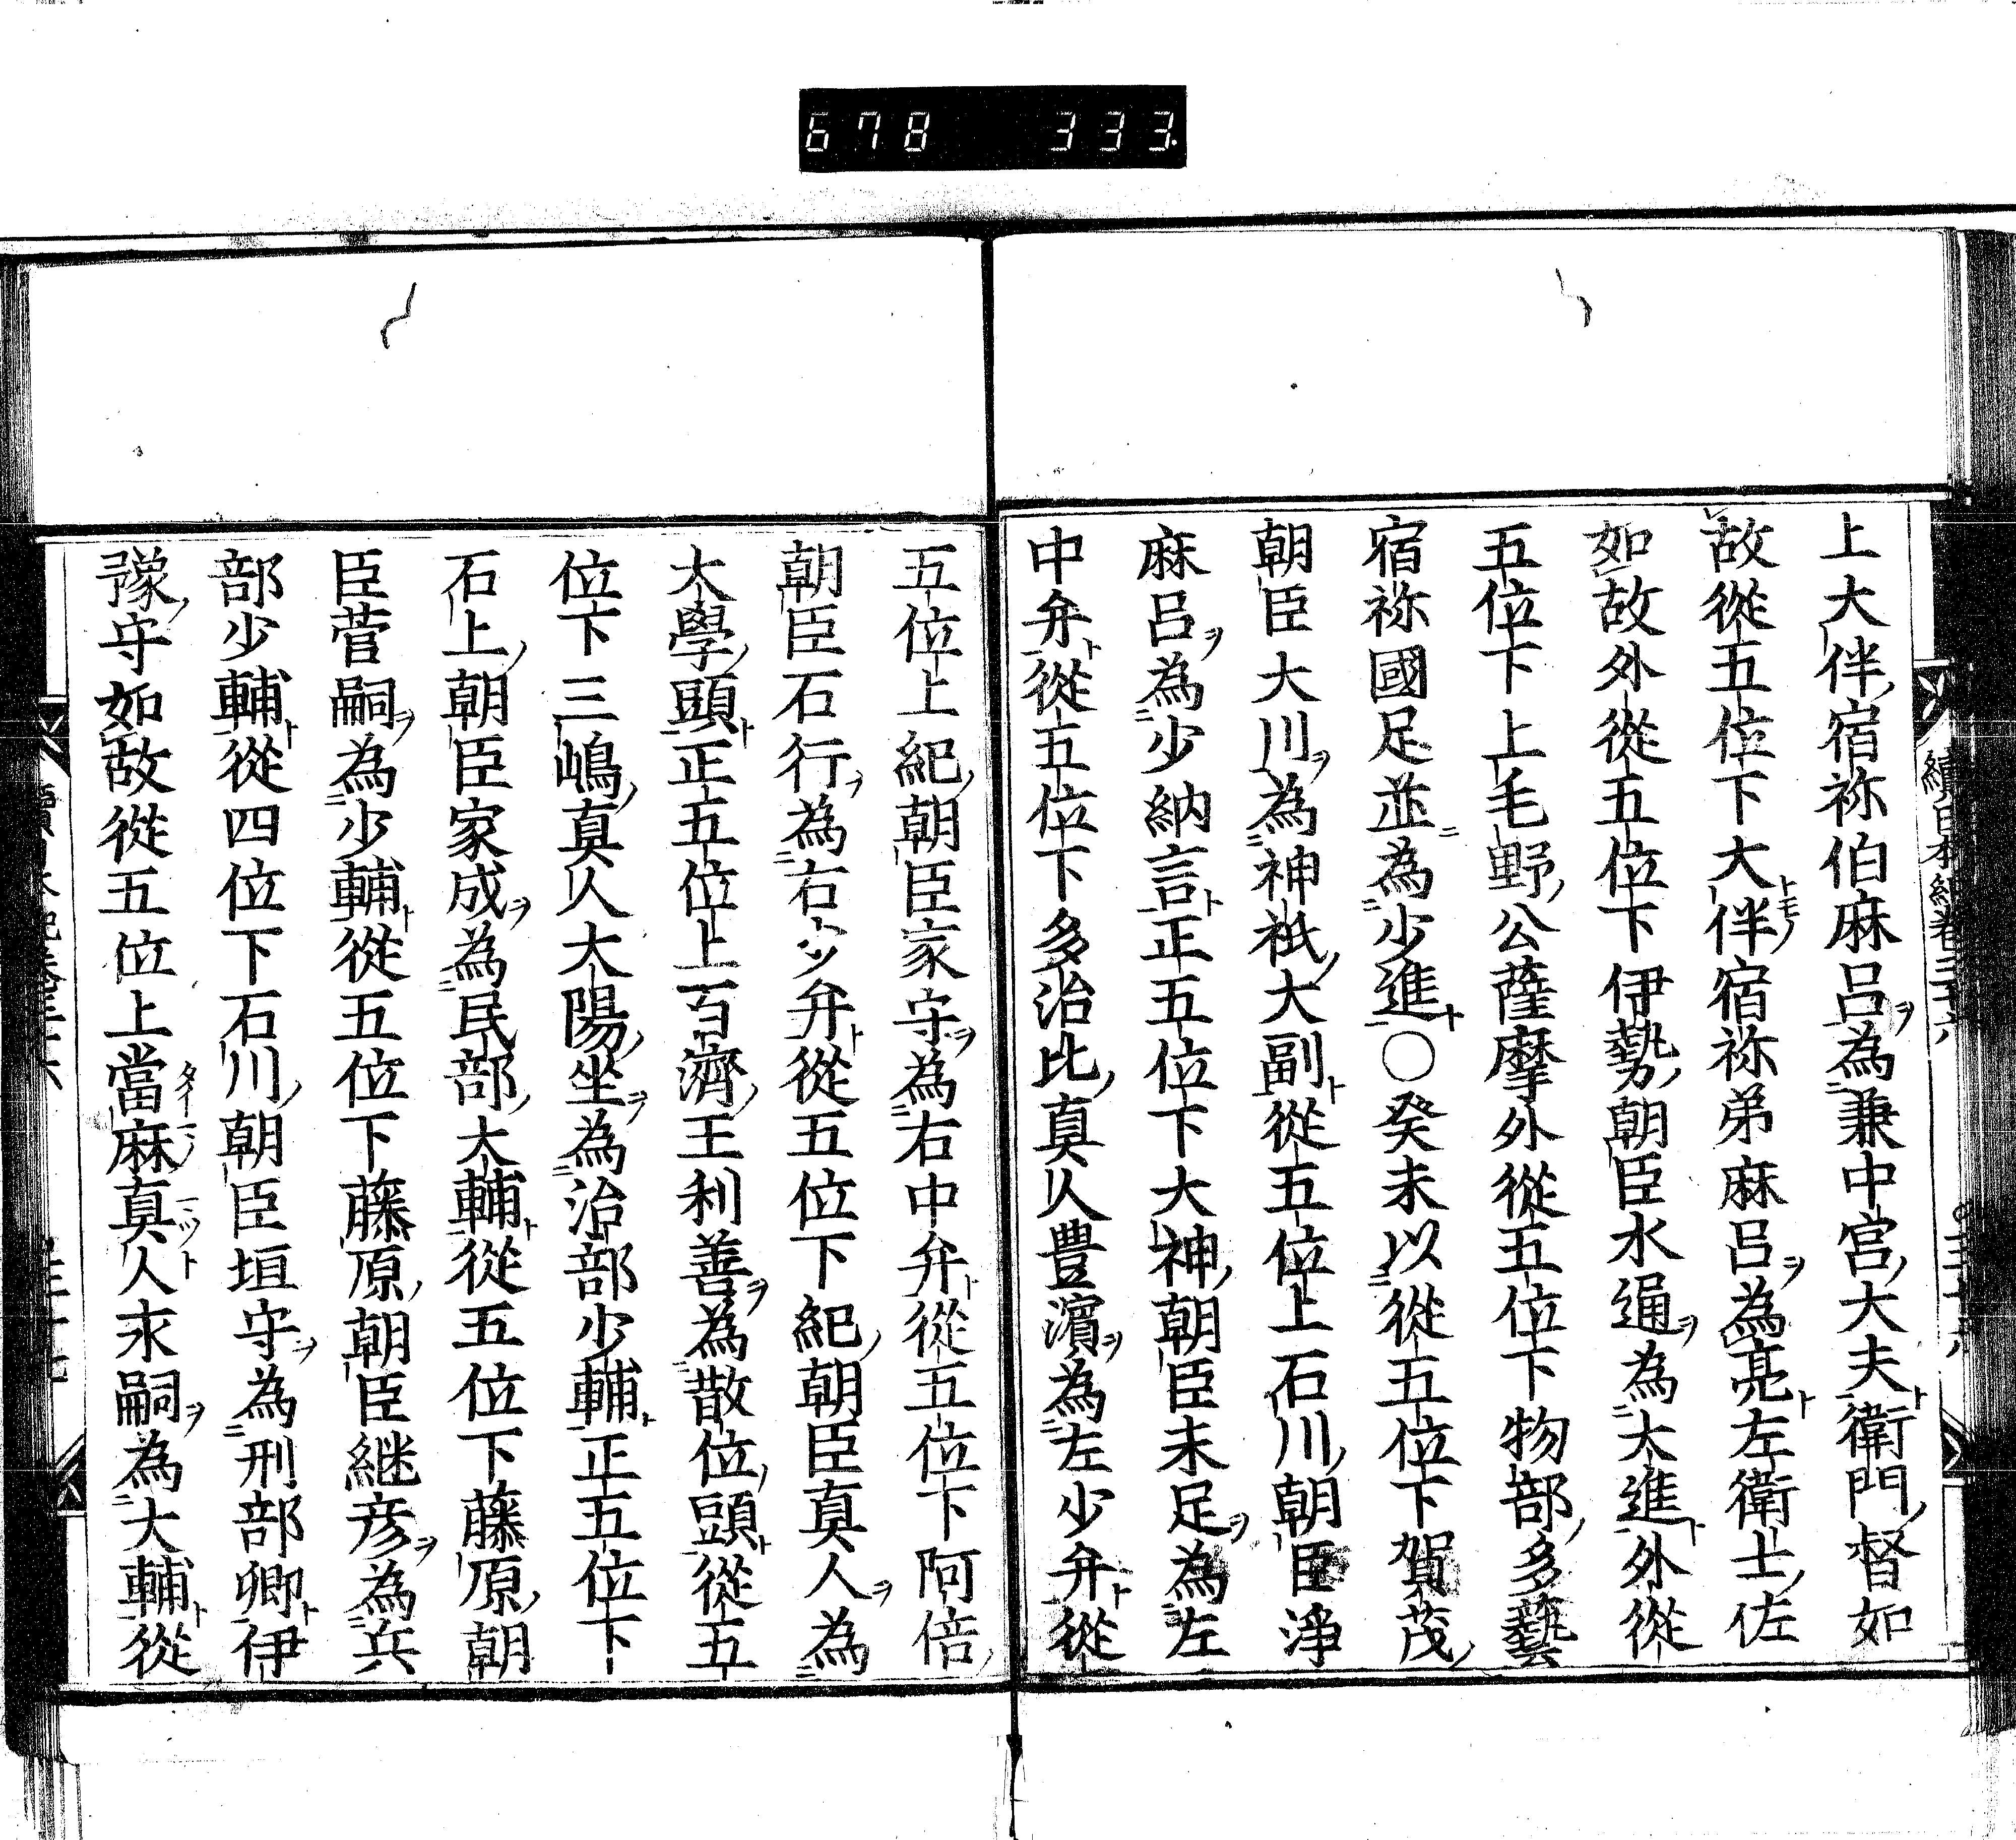 678 333.
上大伴宿祢伯麻呂為兼中宮大夫衛門督如
故從五位下大伴宿祢弟麻呂為亮左衛士佐
如故外從五位下伊勢朝臣水通為大進外從
五位下上毛野公薩摩外從五位下物部多藝
宿祢國足並為少進○癸未以從五位下賀茂
朝臣大川為神祇大副從五位上石川朝臣淨
麻呂為少納言正五位下大神朝臣末足為左
中弁從五位下多治比真人豊濵為左少弁從
五位上紀朝臣家守為右中弁從五位下阿倍
朝臣石行為右少弁從五位下紀朝臣真人為
大學頭正五位上百濟王利善為散位頭從五
位下三嶋真人大陽坐為治部少輔正五位下
石上朝臣家成為民部大輔從五位下藤原朝
臣菅嗣為少輔從五位下藤原朝臣継彦為兵
部少輔從四位下石川朝臣垣守為刑部卿伊
豫守如故從五位上當麻真人永嗣為大輔從